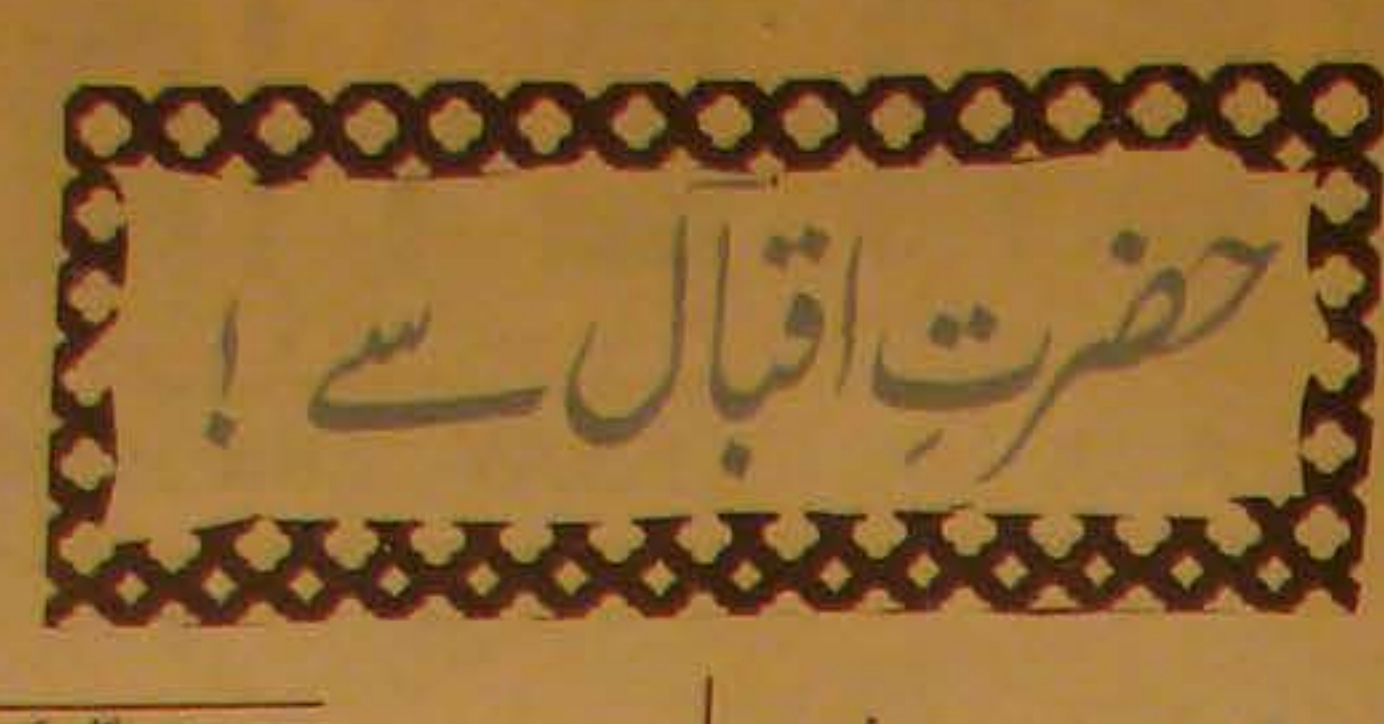 حضرتِ اقبال سے !